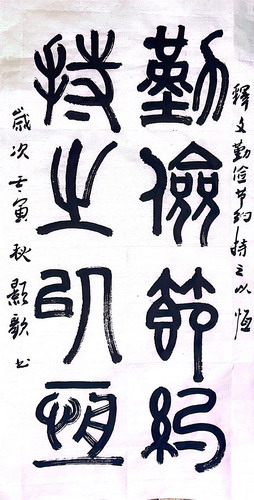 釋文勤俭节约持之以恆
勤儉節約
持之以恆
歲次壬寅秋顯歌书